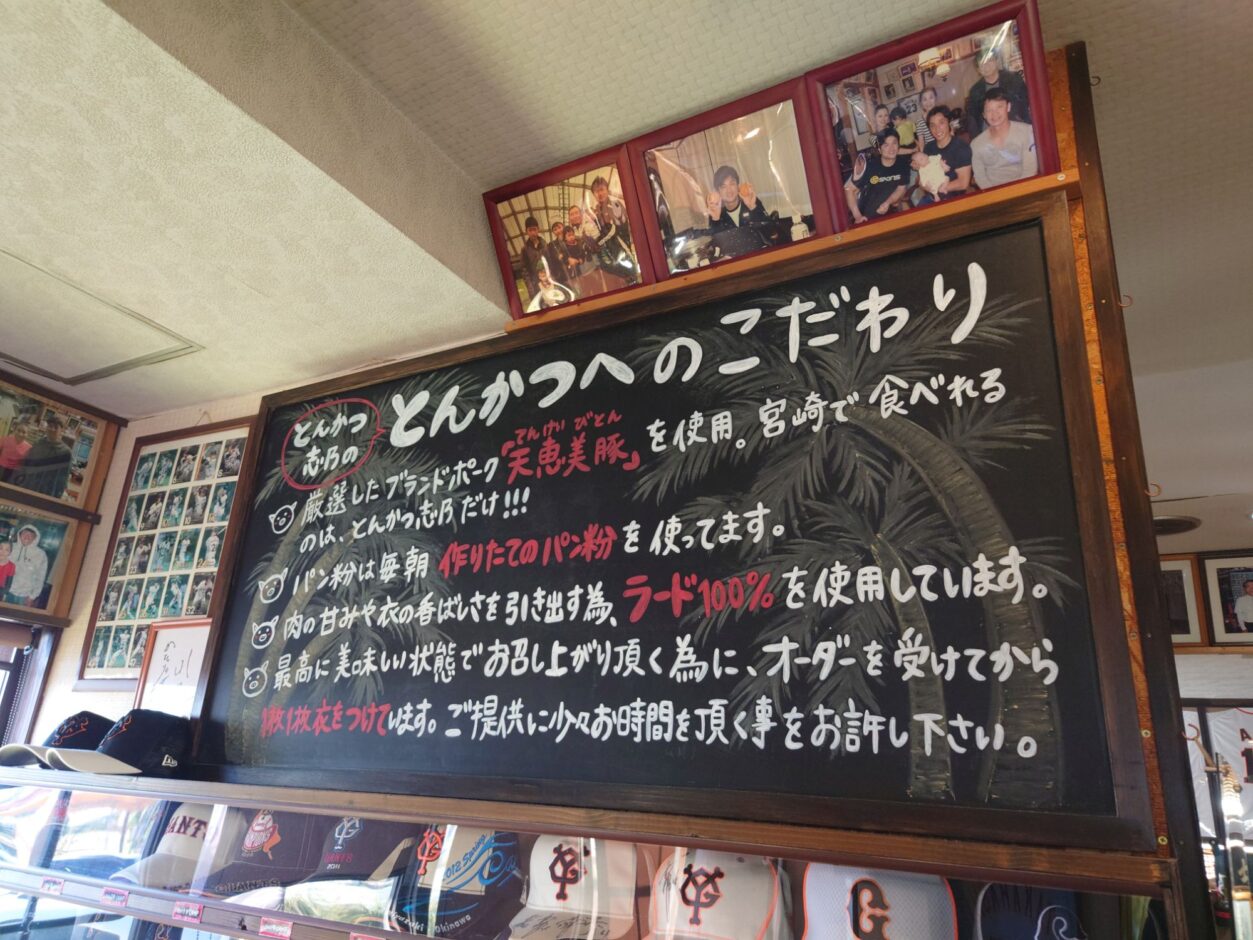 とんかつ
志乃の
とんかつへのこだわり
てんけいびとん
厳選したブランドポーク「天恵美豚」を使用。宮崎で食べれる
のは、とんかつ志乃だけ!!!
パン粉は毎朝 作りたてのパン粉を使ってます。
肉の甘みや衣の香ばしさを引き出す為、ラード100%を使用しています。
最高に美味しい状態でお召し上がり頂く為に、オーダーを受けてから
1枚1枚衣をつけています。ご提供に少々お時間を頂く事をお許し下さい。
SKINS
23
2012 Spring
Okinawa
2011
GIANTS
YG
YG
G